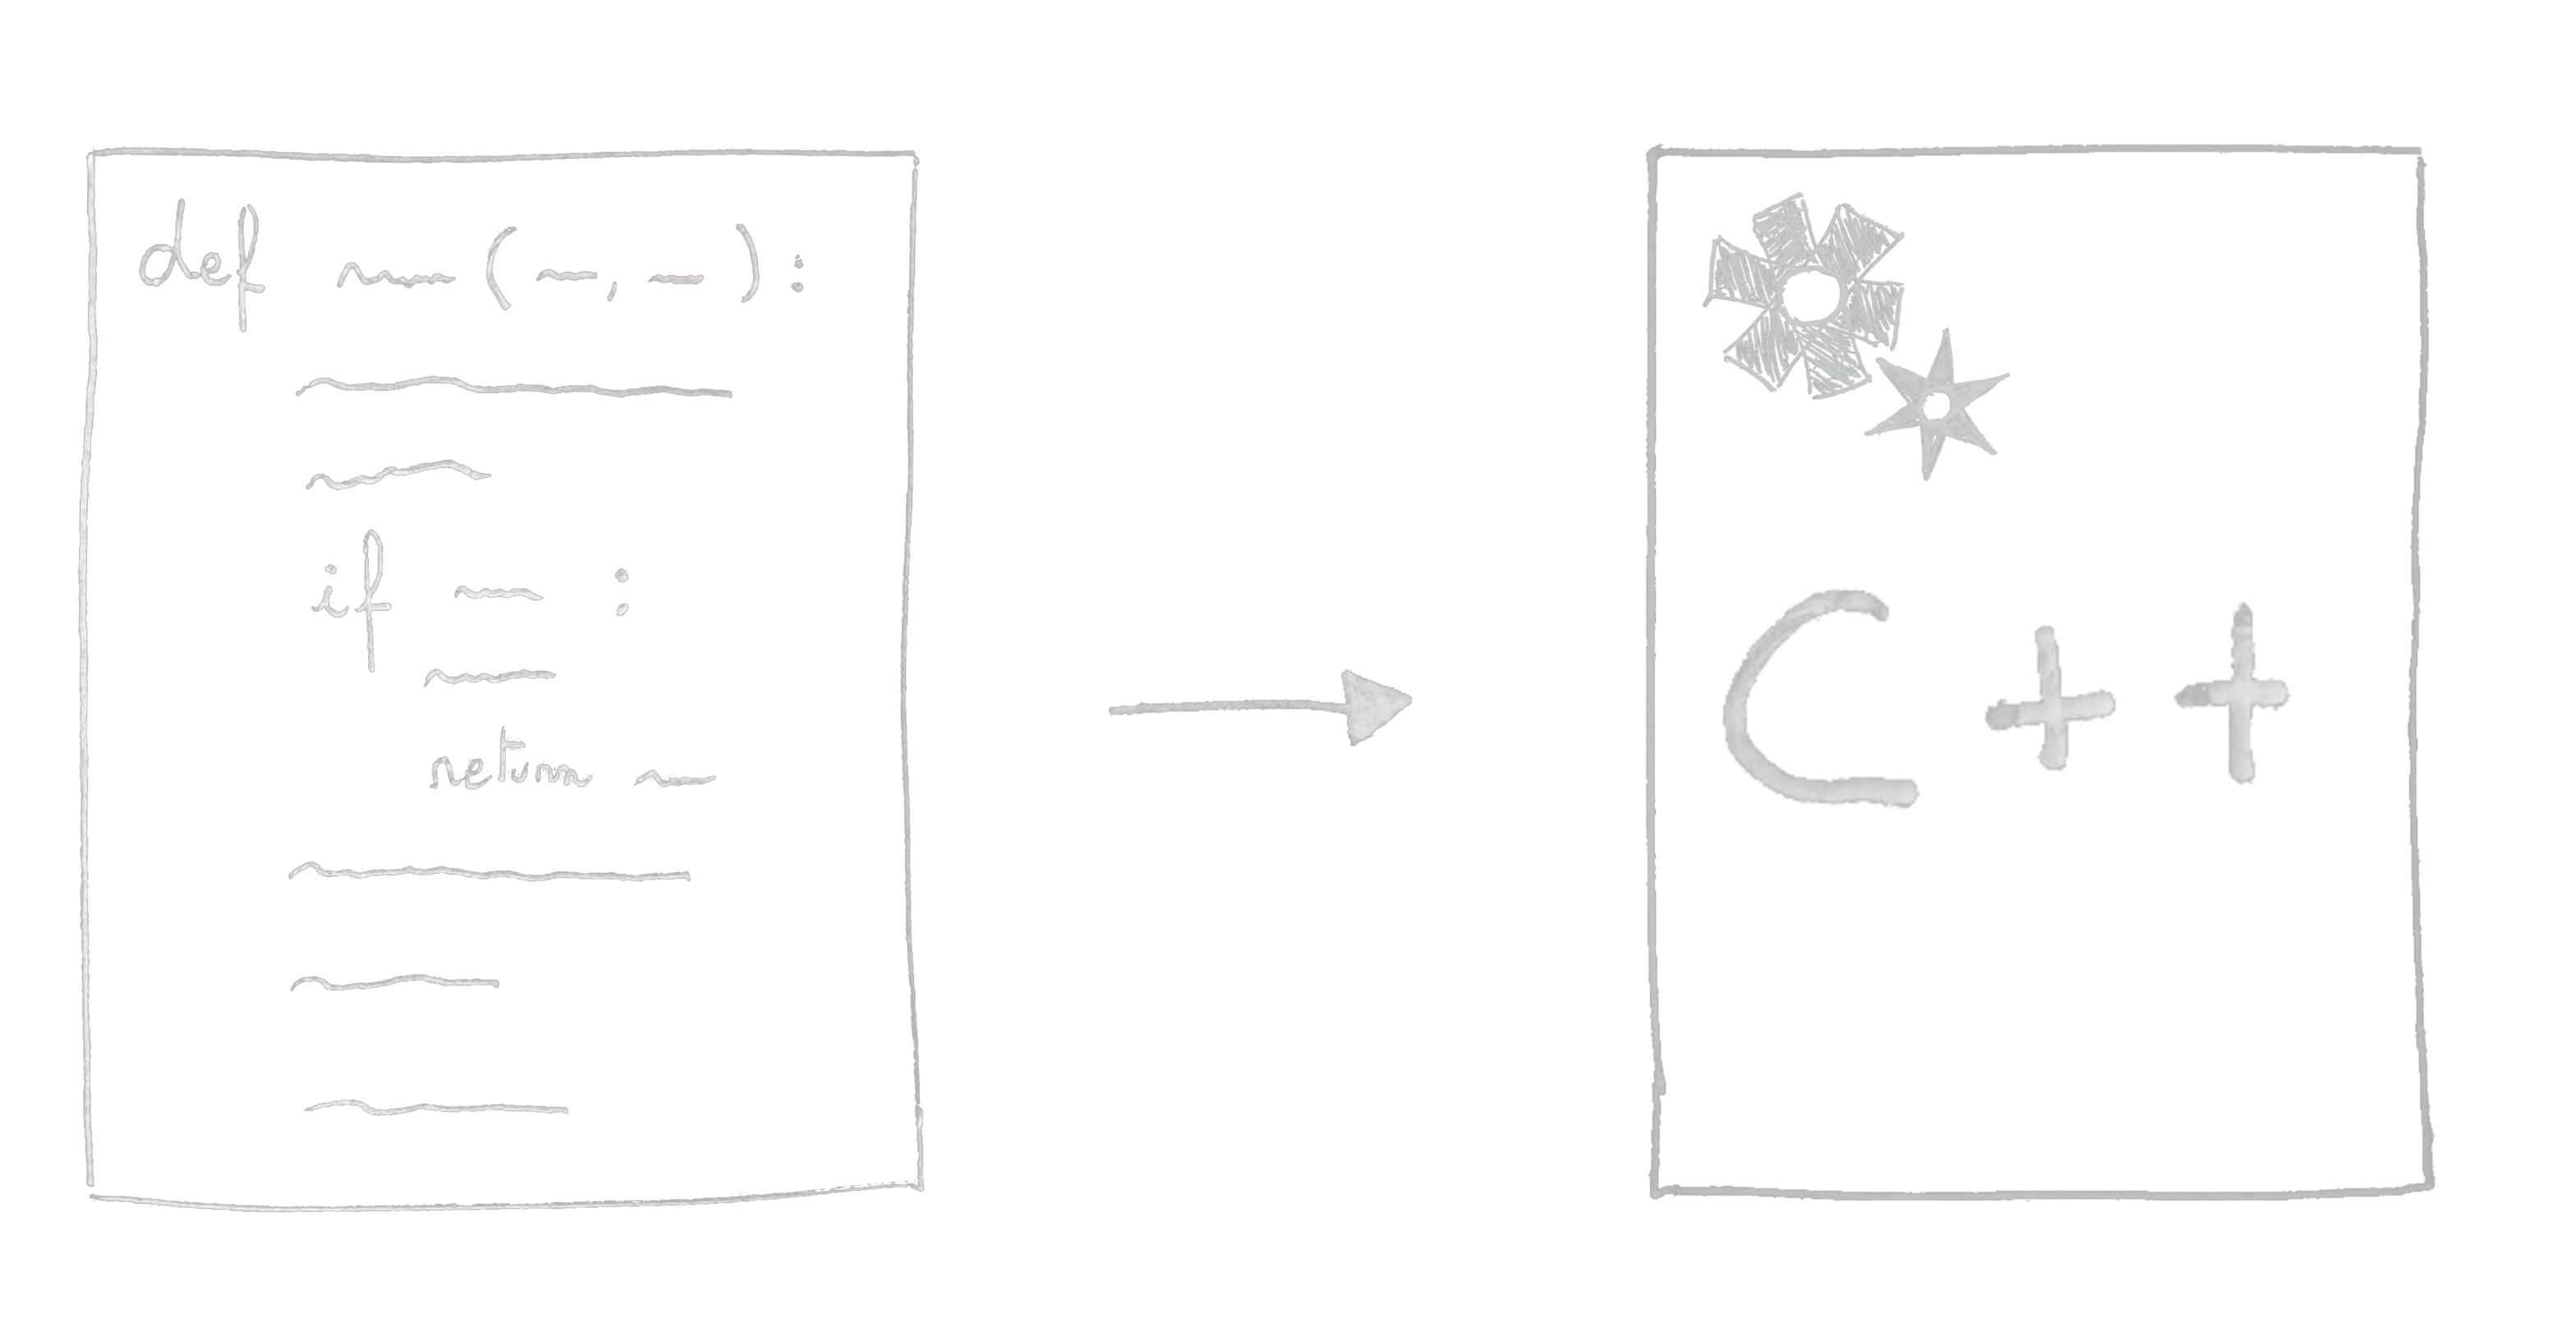 def ( , ):
if :
return
C++